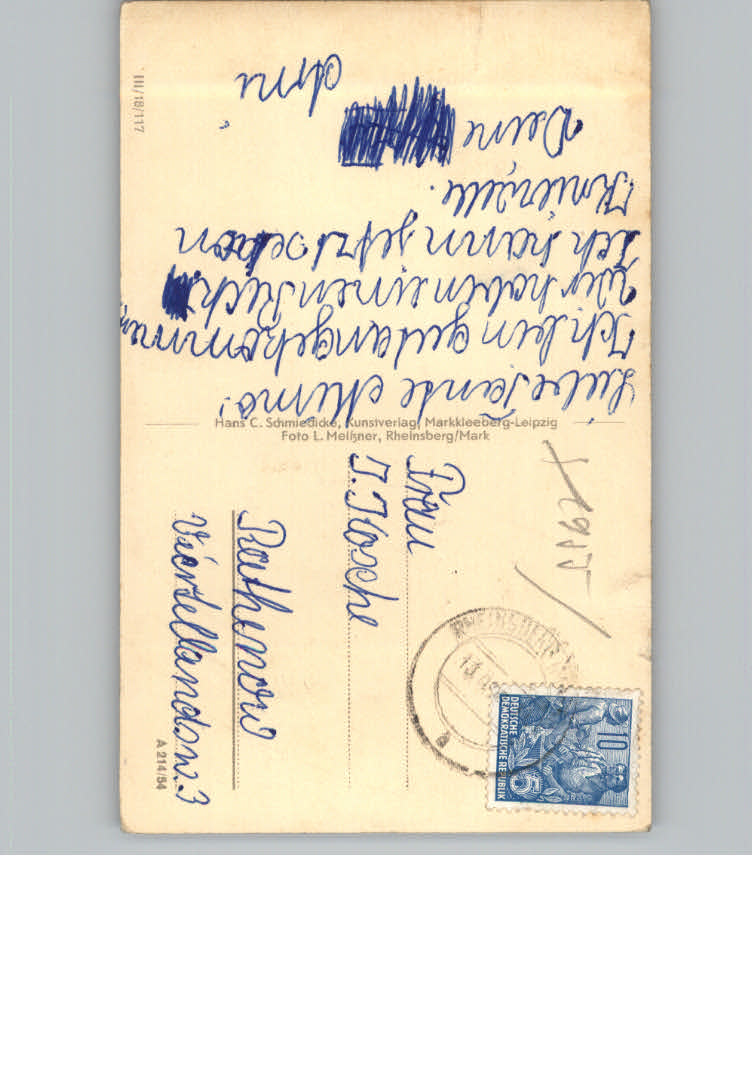 Liebe Tante Mimo!
Ich bin gut angekommen
Wir haben einen
Ich kann jetzt schon
Deine
Arni
III/18/117
Hans C. Schmiedicke, Kunstverlag, Markkleeberg-Leipzig
Foto L. Meißner, Rheinsberg/Mark
Frau
J. Kosche
Rathenow
Viertellandsw. 3
A 214/54
RHEINSBERG
13
DEUTSCHE
DEMOKRATISCHE REPUBLIK
10
5